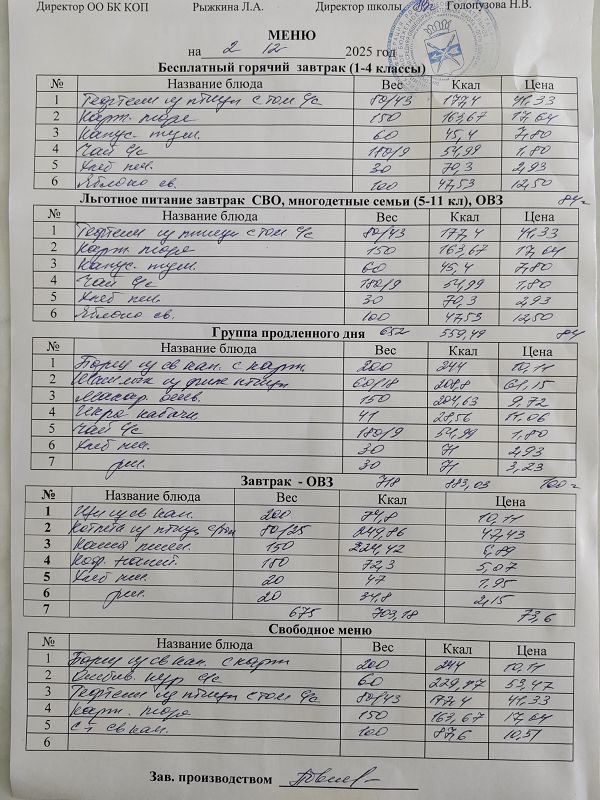 Директор ОО БК КОП Рыжкина Л.А. Директор школы Голопузова Н.В.
МЕНЮ
на 2 12 2025 год
Бесплатный горячий завтрак (1-4 классы)
№ Название блюда Вес Ккал Цена
1 Тефтели из птицы с том с/с 80/43 177,4 41,33
2 Карт. пюре 150 163,67 17,64
3 Капус. туш. 60 45,4 7,80
4 Чай с/с 180/9 54,99 1,80
5 Хлеб пш. 30 70,3 2,93
6 Яблоко св. 100 47,53 12,50
Льготное питание завтрак СВО, многодетные семьи (5-11 кл), ОВЗ 84
№ Название блюда Вес Ккал Цена
1 Тефтели из птицы с том с/с 80/43 177,4 41,33
2 Карт. пюре 150 163,67 17,64
3 Капус. туш. 60 45,4 7,80
4 Чай с/с 180/9 54,99 1,80
5 Хлеб пш. 30 70,3 2,93
6 Яблоко св. 100 47,53 12,50
Группа продленного дня 652 559,49 84
№ Название блюда Вес Ккал Цена
1 Борщ из св кап. с карт 200 244 10,11
2 из филе птицы 60/18 208,8 61,15
3 Макар. отв. 150 204,63 9,72
4 Икра кабачк. 41 28,56 11,06
5 Чай с/с 180/9 54,99 1,80
6 Хлеб пш. 30 71 2,93
7 рж. 30 71 3,23
Завтрак - ОВЗ 718 883,03 100
№ Название блюда Вес Ккал Цена
1 Щи из св кап. 200 74,8 10,11
2 Котлета из птицы 80/25 249,86 47,43
3 Каша 150 224,42 6,89
4 Коф. напит. 180 72,3 5,07
5 Хлеб пш. 20 47 1,95
6 рж. 20 34,8 2,15
7 675 703,18 73,6
Свободное меню
№ Название блюда Вес Ккал Цена
1 Борщ из св кап. с карт 200 244 10,11
2 кур 60 229,77 53,47
3 Тефтели из птицы с том с/с 80/43 177,4 41,33
4 Карт. пюре 150 163,67 17,64
5 св кап. 100 87,6 10,51
6
Зав. производством